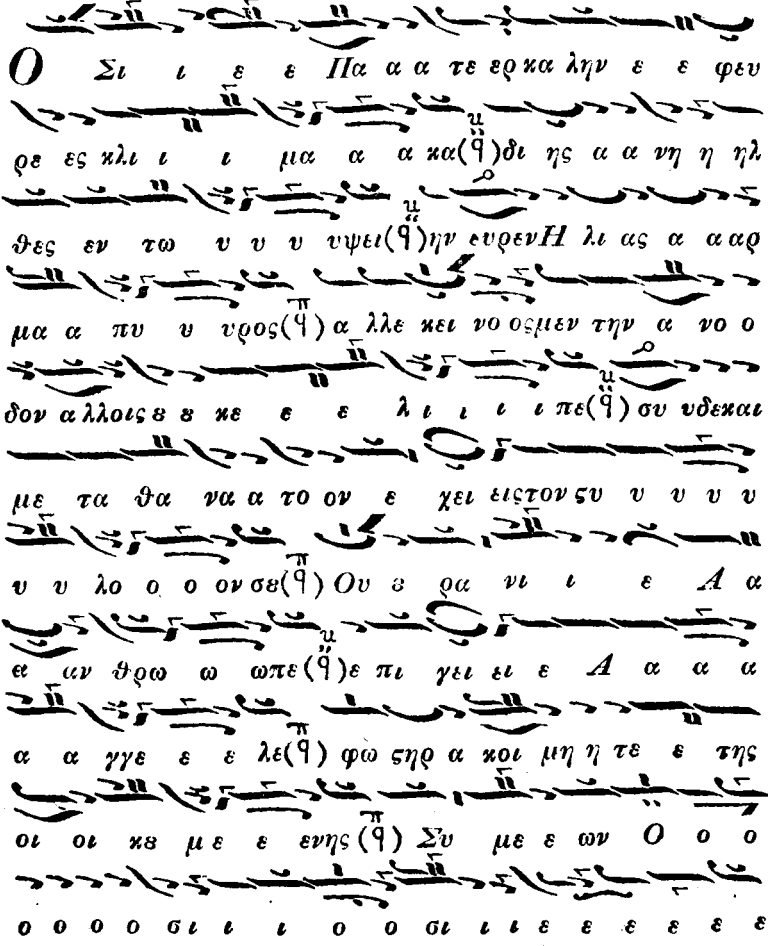 Ο Σι ι ε ε Πα α α τε ερ κα λην ε ε φευ
ρε ες κλι ι ι μα α α κα(q̈)δι ης α α νη η ηλ
θες εν τω υ υ υ υψει(q̈)ην ευρενΗ λι ας α α αρ
μα α πυ υ υρος(q) α λλε κει νο οςμεν την α νο ο
δον α λλοις ȣ ȣ κε ε ε λ ι ι ι ι πε(q̈) συ υδεκαι
με τα θα να α το ον ε χει ειςτον ςυ υ υ υ υ
υ υ λο ο ο ον σȣ(q) Ου ȣ ρα νι ι ε Α α
α αν θρω ω ωπε(q̈)ε πι γει ει ε Α α α α
α α γγε ε ε λε(q) φω ςηρ α κοι μη η τε ε της
οι οι κȣ με ε ε ενης (q) Συ με ε ων Ο ο ο
ο ο ο ο σι ι ι ο ο σι ι ι ε ε ε ε ε ε